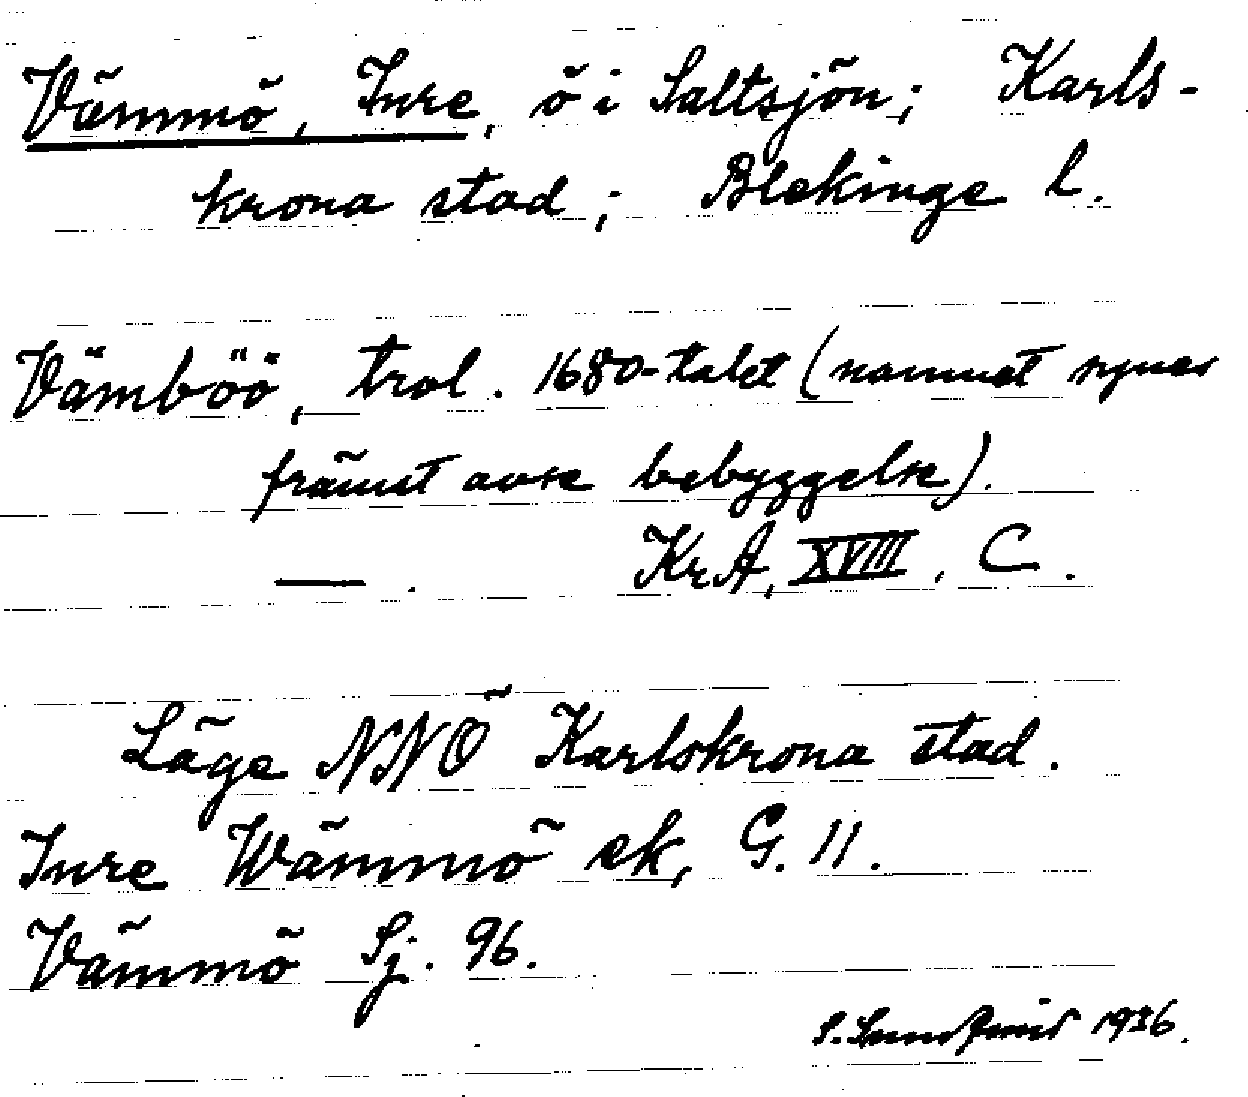 Vämmö, Inre, ö i Saltsjön; Karls-
krona stad; Blekinge l.
Vämböö, trol. 1680-talet (namnet synes
främst avse bebyggelse).
—. KrA, XVIII, C.
Läge NNÖ Karlskrona stad.
Inre Wämmö ek, G. 11.
Vämmö Sj. 96.
S. 1936.